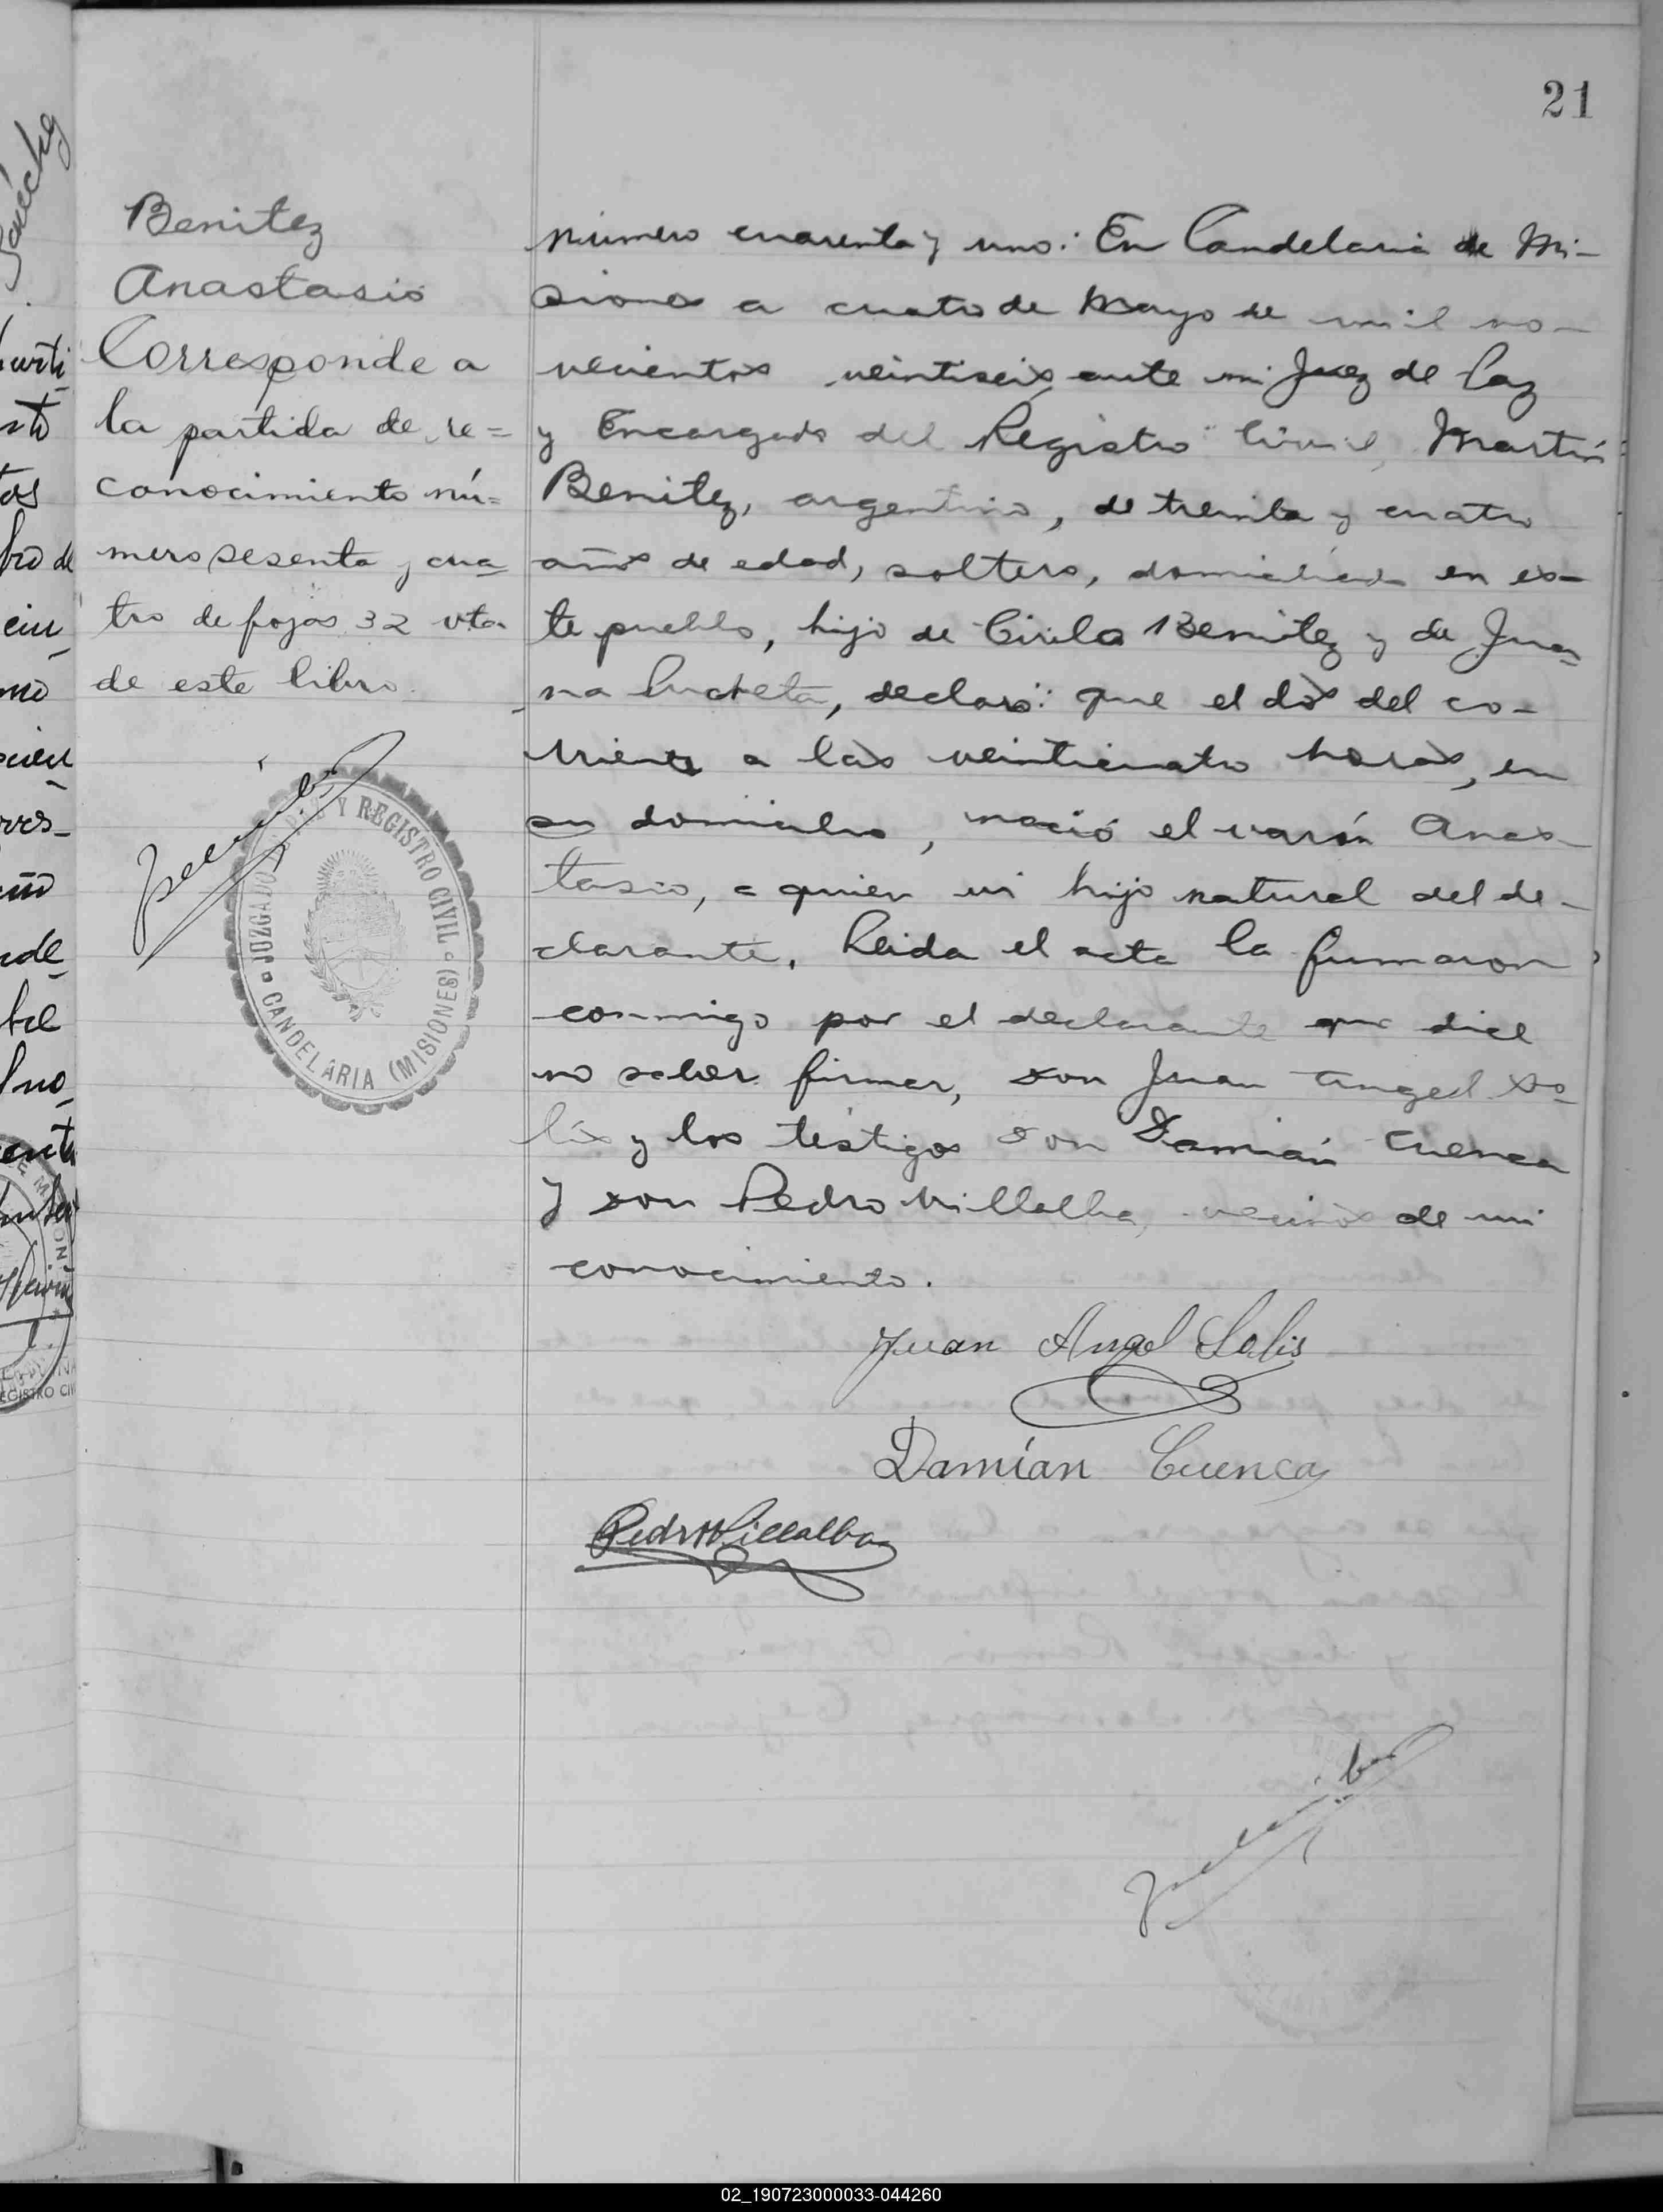 21
Benitez
Anastasio
Corresponde a
la partida de re=
conocimiento nú=
mero sesenta y cua=
tro de fojas 32 vta.
de este libro.
JUZGADO DE PAZ Y REGISTRO CIVIL
CANDELARIA (MISIONES)
número cuarenta y uno: En Candelaria de Mi-
siones a cuatro de Mayo de mil no-
vecientos veintiseis, ante mi Juez de Paz
y Encargado del Registro Civil, Martín
Benitez, argentino, de treinta y cuatro
años de edad, soltero, domiciliado en es-
te pueblo, hijo de Cirila Benitez y de Jua-
na, declaró: que el dos del co-
rriente a las veinticuatro horas, en
su domicilio, nació el varón Anas-
tasio, a quien hijo natural del de-
clarante. Leida el acta la firmaron
conmigo por el declarante que dice
no saber firmar, don Juan Angel So-
lis y los testigos don Damián Cuenca
y don Pedro Villalba, vecinos de mi
conocimiento.
Juan Angel Solis
Damían Cuenca
Pedro Villalba
02_190723000033-044260